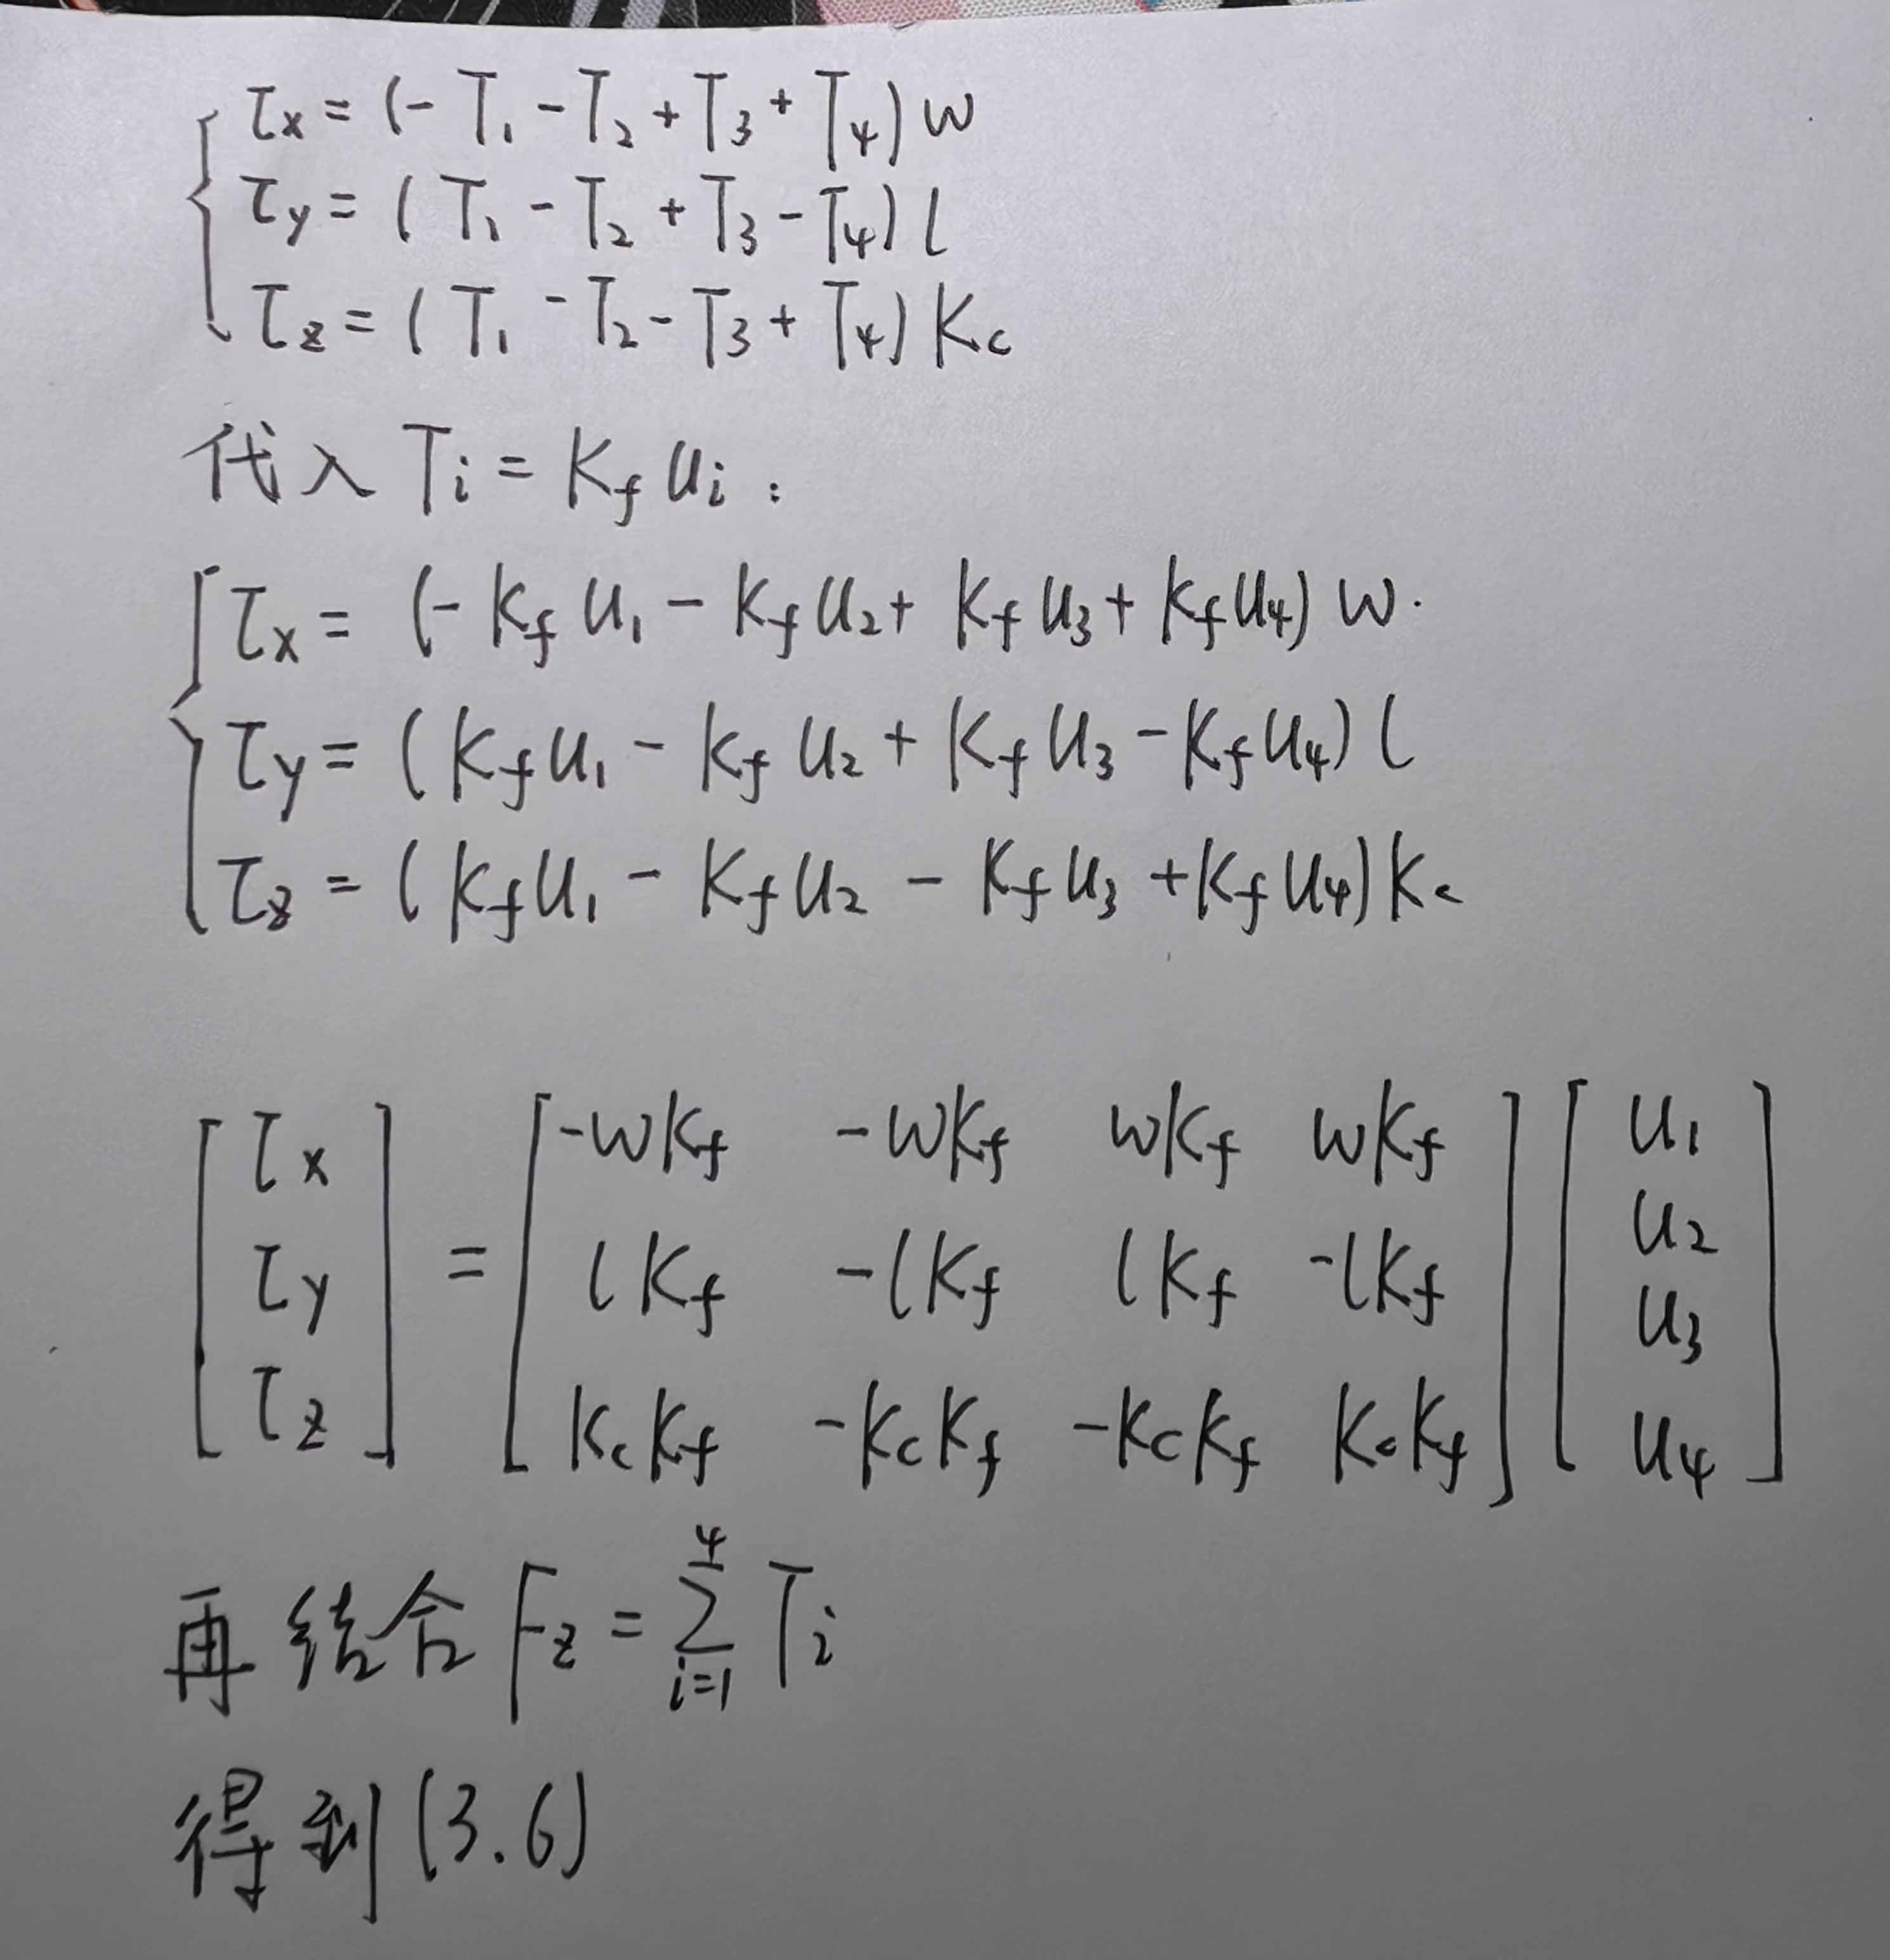 τx = (- T₁ - T₂ + T₃ + T₄) w
τy = ( T₁ - T₂ + T₃ - T₄) l
τz = ( T₁ - T₂ - T₃ + T₄) Kc
代入 Ti = Kf ui :
τx = (- Kf u₁ - Kf u₂ + Kf u₃ + Kf u₄) w.
τy = ( Kf u₁ - Kf u₂ + Kf u₃ - Kf u₄) l
τz = ( Kf u₁ - Kf u₂ - Kf u₃ + Kf u₄) Kc
[ τx ] [ -wKf -wKf wKf wKf ] [ u₁ ]
[ τy ] = [ lKf -lKf lKf -lKf ] [ u₂ u₃ ]
[ τz ] [ KcKf -KcKf -KcKf KcKf ] [ u₄ ]
再结合 Fz = ∑_{i=1}^{4} Ti
得到 (3.6)